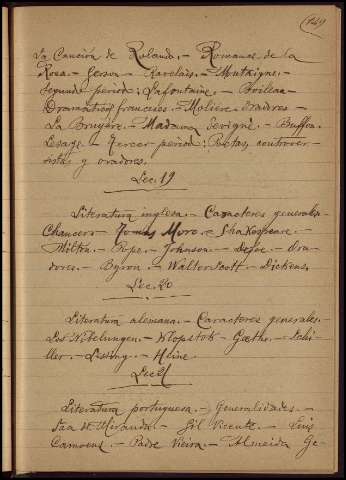 149
La Canción de Roland. – Romanas de la
Rosa. – Gerson – Ravelais. – Muntaigne. –
Segundo periodo; Lafontaine. – Boileau –
Dramáticos franceses. – Moliere. Oradores –
La Bruyère. – Madama Sevigné. – Buffon.
Lesage. – Tercer periodo; Poetas, controver-
sistas y oradores.
Lec. 19
Literatura inglesa. – Caracteres generales.
Chaucer – Tomas Moro. – Shakespeare. –
Milton. – Pope. – Johnson. – Defoe. – Ora-
dores. – Byron. – Walter Scott. – Dickens.
Lec. 20
Literatura alemana. – Caracteres generales. –
Los Nibelungen. – Klopstok – Goethe. – Schi-
ller. – Lessing. – Heine.
Lec. 21
Literatura portuguesa. – Generalidades. –
Saa de Miranda. – Gil Vicente. – Luis
Camoens. – Padre Vieira. – Almeida Ge-